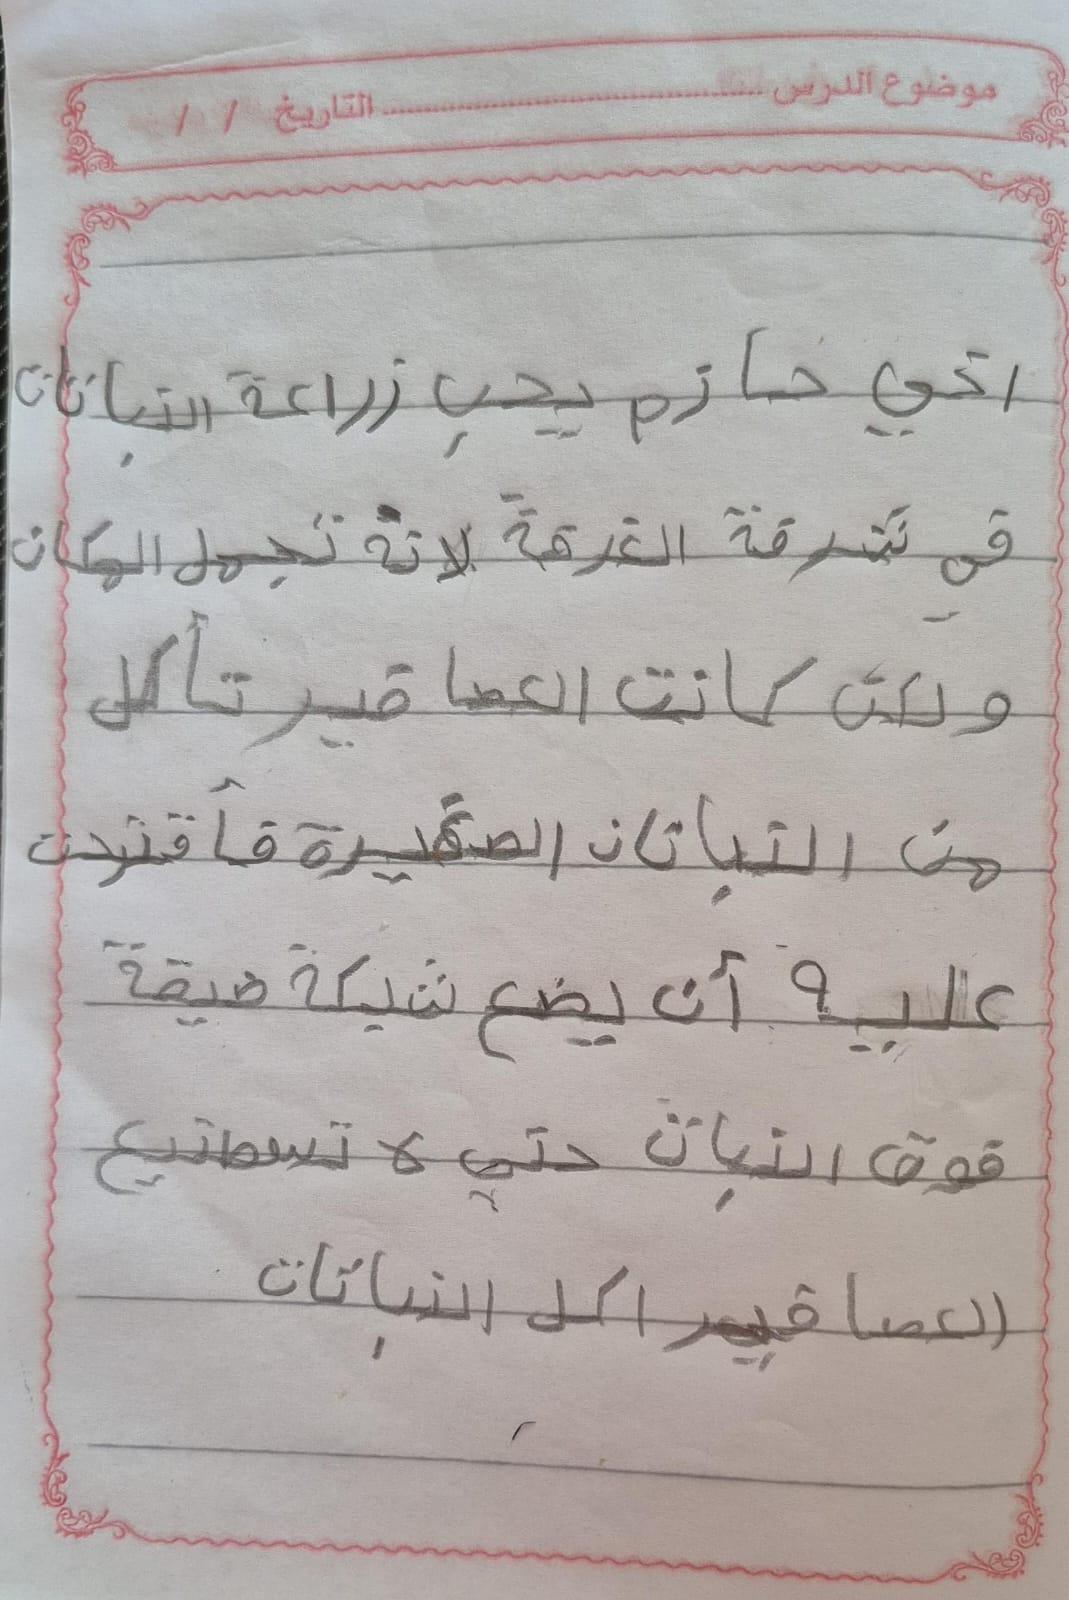 موضوع الدرس ........................ التاريخ / /
اخي حازم يحب زراعة النباتات
في شرفة الغرفة لانة تجمل المكان
ولكن كانت العصافير تأكل
من النباتات الصغيرة فأقترحت
علية أن يضع شبكة ضيقة
فوق النبات حتي لا تسطتيع
العصافير اكل النباتات